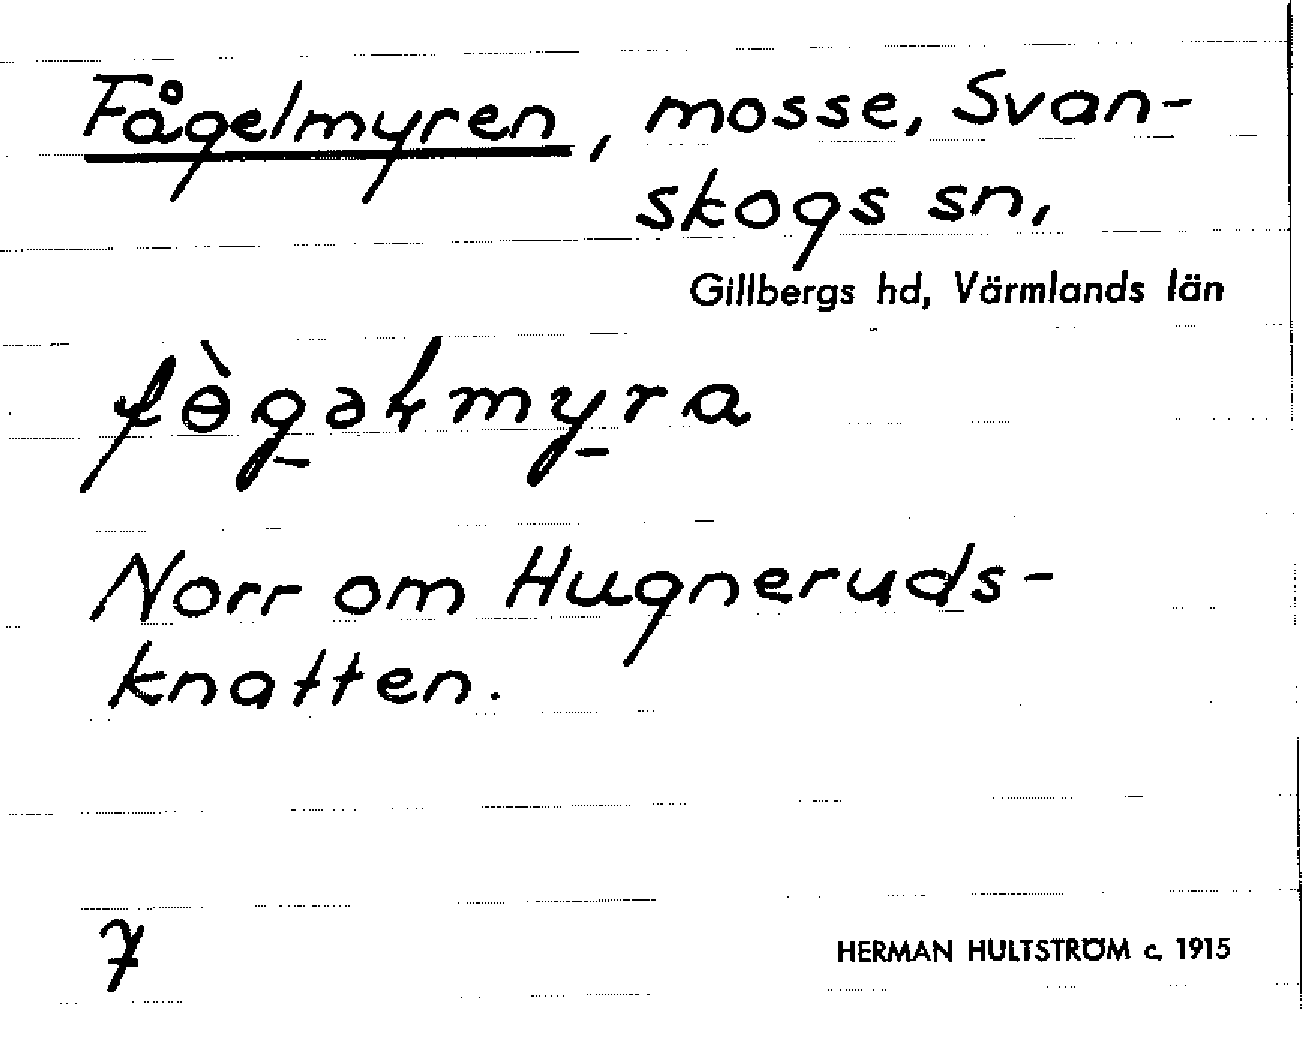 Fågelmyren, mosse, Svan-
skogs sn,
Gillbergs hd, Värmlands län
fɵ̀gəɫmyra
Norr om Hugneruds-
knatten.
7
HERMAN HULTSTRÖM c. 1915